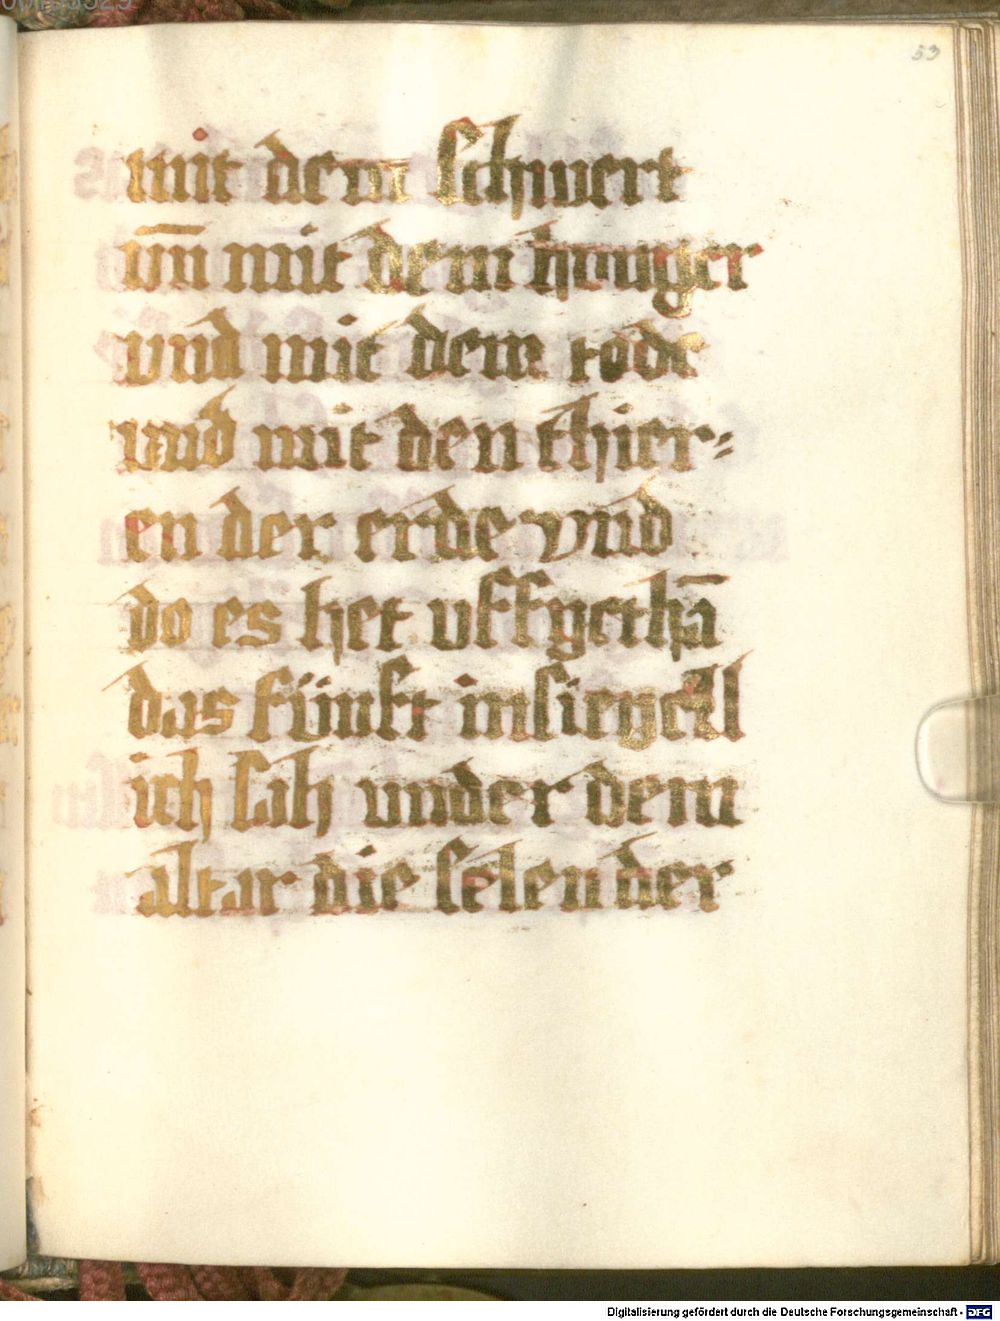 53
mit dem schwert
vn̄ mit dem hunger
vnd mit dem tode
vnd mit den thier⸗
en der erde vnd
do es het vffgethā
das fünft insiegell
ich sah vnder dem
altar die selen der
Digitalisierung gefördert durch die Deutsche Forschungsgemeinschaft - DFG